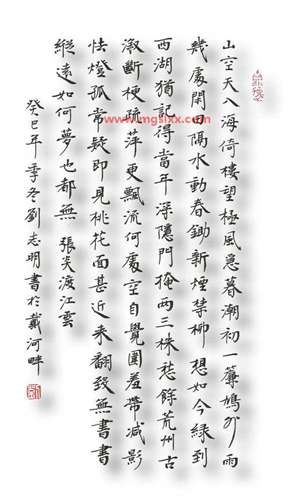 山空天入海倚樓望極風急暮潮初一簾鳩外雨
幾處閒田隔水動春鋤新煙禁柳想如今綠到
西湖猶記得當年深隱門掩兩三株愁餘荒州古
溆斷梗疏萍更飄流何處空自覺圍羞帶減影
怯燈孤常疑即見桃花面甚近來翻致無書書
縱遠如何夢也都無 張炎渡江雲
癸巳年季冬劉志明書於戴河畔
www.mgslxx.com